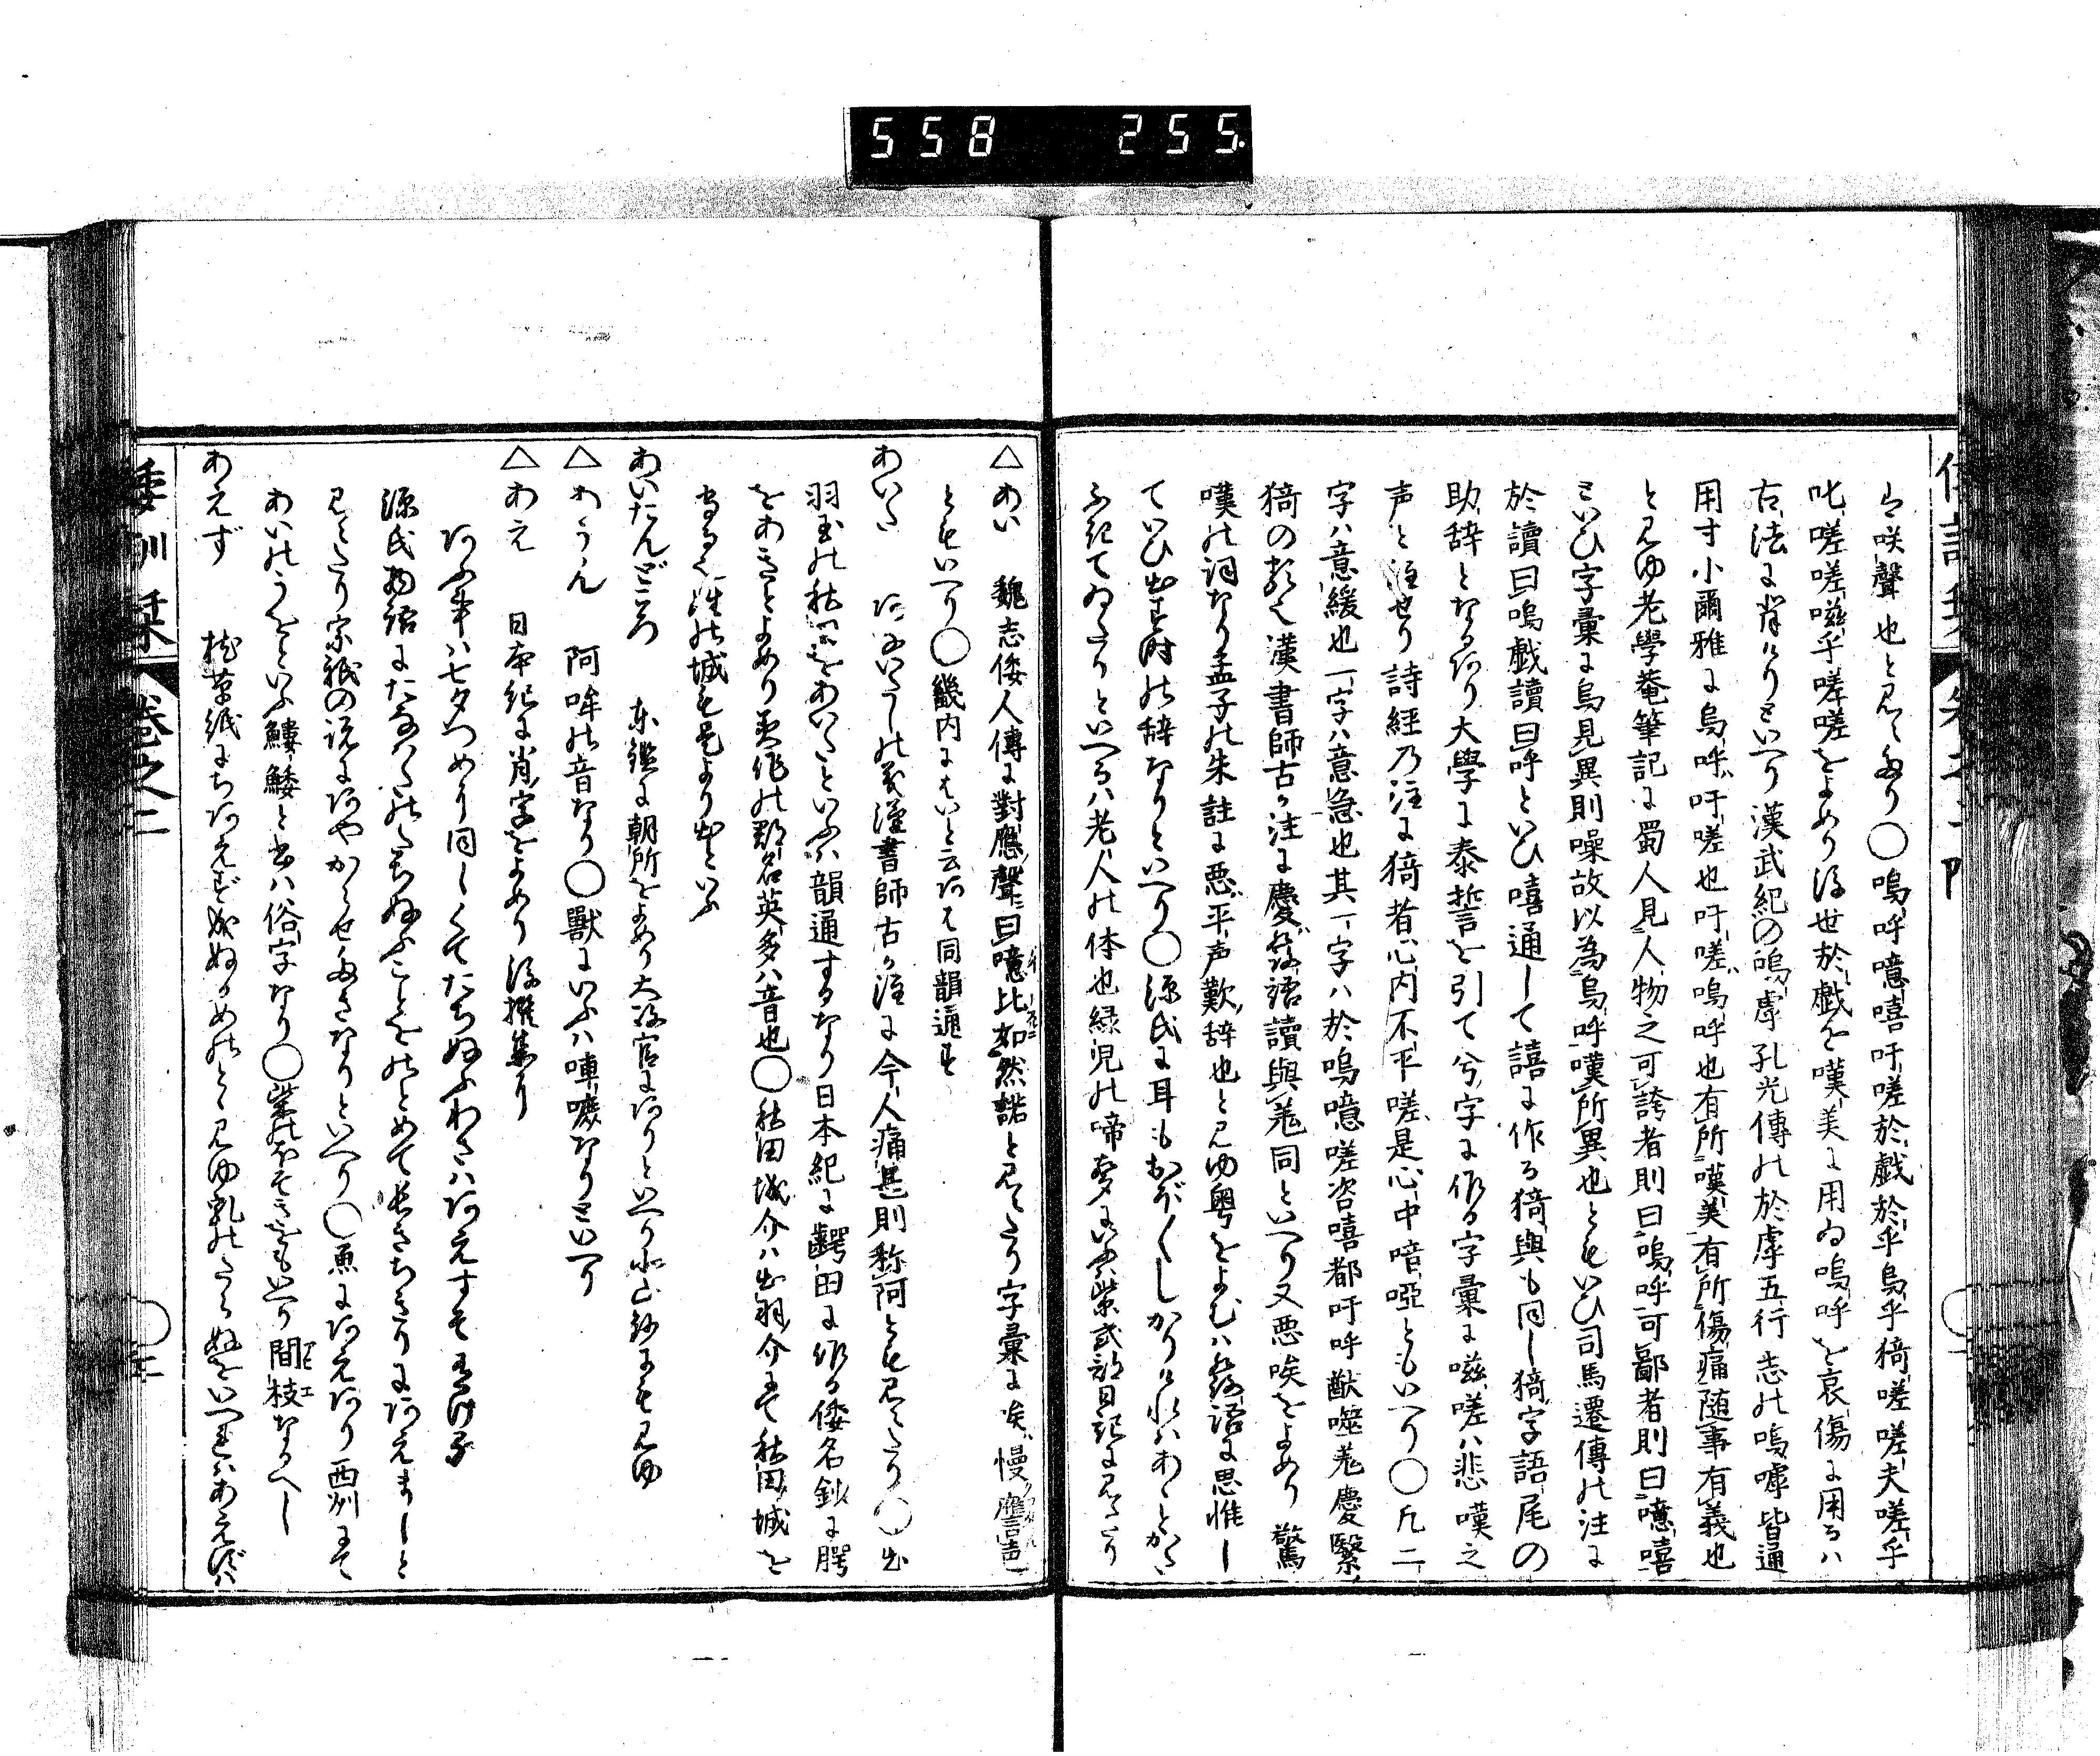 558 255
は咲聲也と見えたり○嗚呼噫嘻吁嗟於戯於乎烏乎猗嗟嗟夫嗟乎
叱嗟嗟嗞乎嗟嗟をよめり後世於戯を嘆美に用ゐ嗚呼を哀傷に用るハ
古法に背けりといへり漢武紀の嗚虖孔光傳の於虖五行志の嗚嘑皆通
用す小爾雅に烏呼吁嗟也吁嗟嗚呼也有所嘆美有所傷痛随事有義也
と見ゆ老學菴筆記に蜀人見人物之可誇者則曰嗚呼可鄙者則曰噫嘻
といひ字彙に烏見異則噪故以為烏呼嘆所異也ともいひ司馬遷傳の注に
於讀曰嗚戯讀曰呼といひ嘻通して譆に作る猗與も同し猗字語尾の
助辞となるあり大學に泰誓を引て兮字に作る字彙に嗞嗟ハ悲嘆之
声と注せり詩経乃注に猗者心内不平嗟是心中喑啞ともいへり○凡二
字ハ意緩也一字ハ意急也其一字ハ於嗚噫嗟咨嘻都吁呼猷噬羌慶繄
猗の類也漢書師古か注に慶發語讀與羌同といへり又悪唉をよめり驚
嘆の詞なり孟子の朱註に悪平声歎辞也と見ゆ粤をよむハ發語に思惟し
ていひ出す時の辞なりといへり○源氏に耳もおぼ〱しかりけれハあゝとかた
ふきてゐたりといへるハ老人の体也緑児の啼聲にいふハ紫式部日記に見えたり
△あい 魏志倭人傳に對應聲曰噫比如然諾と見えたり字彙に唉慢譍声
ともいへり○畿内にはいと云あは同韻通す
あいた あないたしの義漢書師古か注に今人痛甚則称阿とも見えたり○出
羽国の秋田をあいたといふハ韻通するなり日本紀に齶田に作る倭名鈔に腭
をあきとよめり美作の郡名英多ハ音也○秋田城介ハ出羽介にて秋田城を
守る也淮の城も是より出といふ
あいたんどころ 東鑑に朝所をよめり大政官にありといへり水山抄にも見ゆ
△あうん 阿吽の音なり○獸にいふハ㖠㗻なりといへり
△あえ 日本紀に肖字をよめり後撰集に
あふ事ハ七夕つめり同しくてたちぬふわさハあえすそ有ける
源氏物語にたなハたのたちぬふことをのとめて長きちきりにあえましと
見えたり宗祇の説にあやからせたきなりといへり○魚にあえあり西州にて
あいのうをといふ鱫鯘と書ハ俗字なり○柴のほそきをもいへり間枝なるへし
あえず 枕草紙にちりあえず
倭訓栞 巻之二